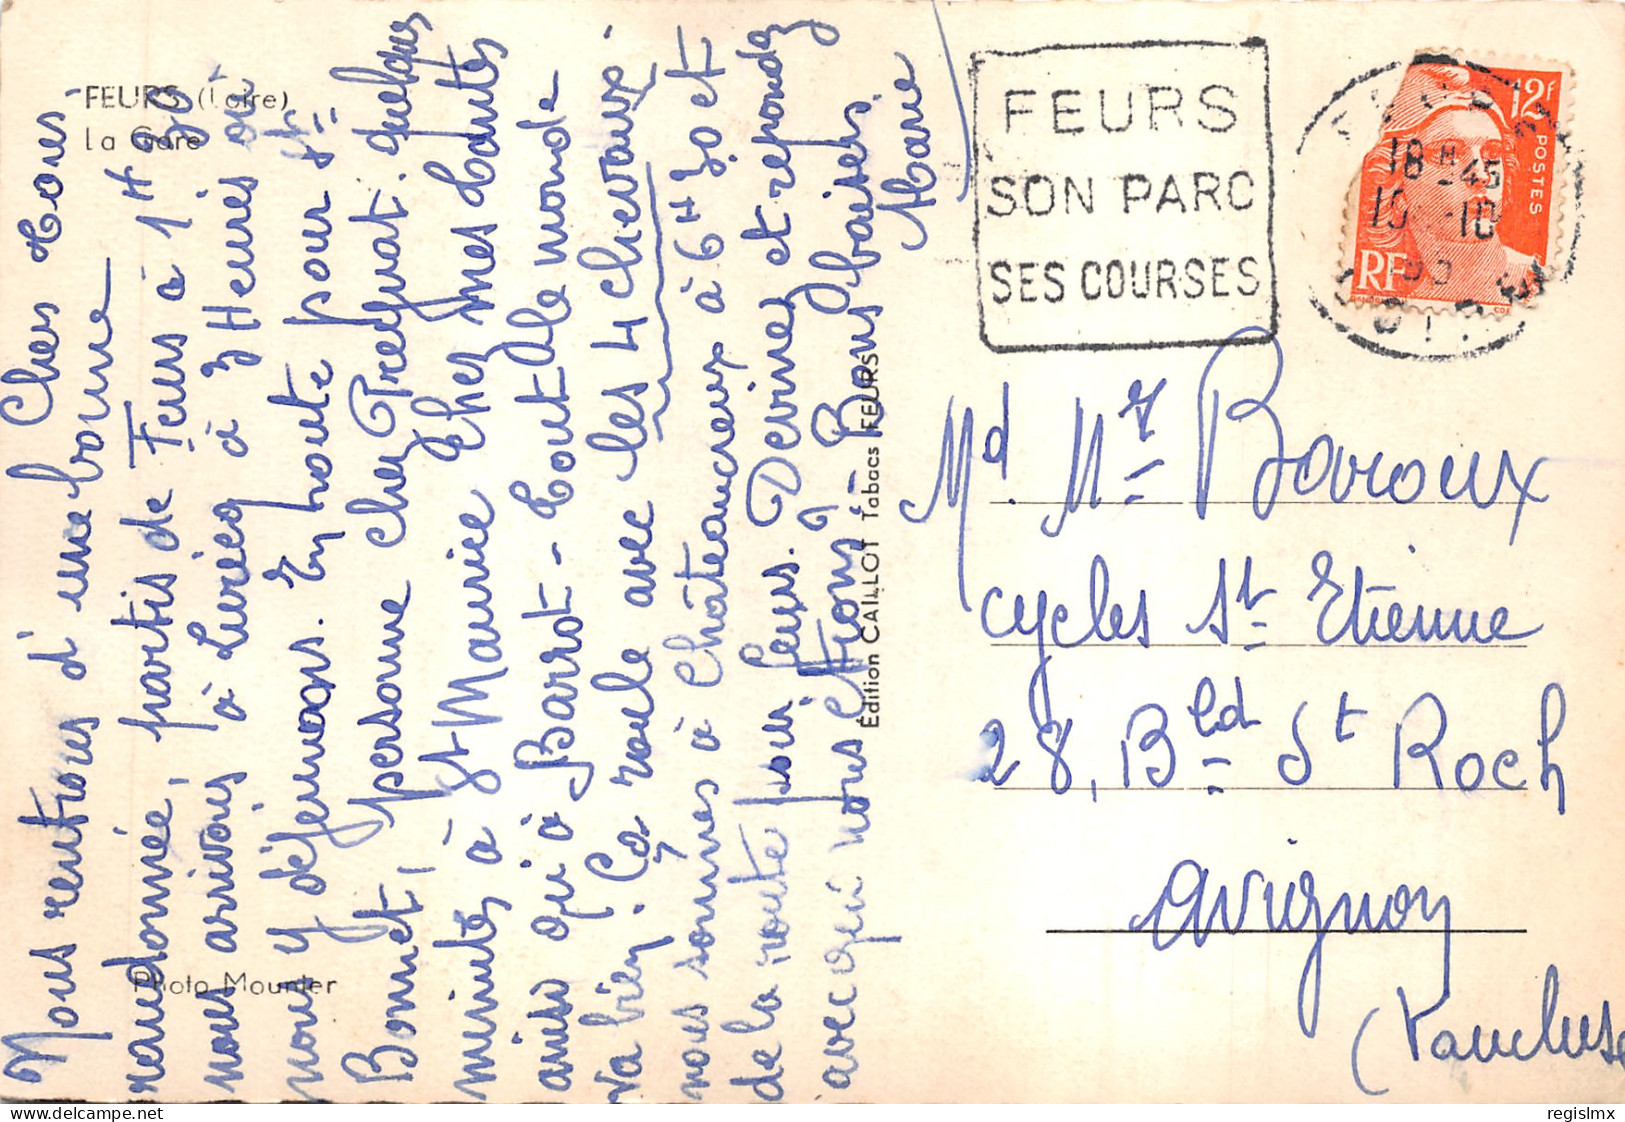 FEURS (Loire)
La Gare
Chers Tous -
Nous rentrons d'une bonne
randonnée, partis de Feurs à 1H 30
nous arrivons à Luriecq à 3 Heures où
nous y déjeunons. En route pour St-
Bonnet, personne chez Fredgnat. quelques
minutes à St Maurice chez mes tantes
ainsi qu'à Barrot - Tout le monde
va bien. Ca roule avec les 4 chevaux.
nous sommes à Châteauneuf à 6H 30 et
de la route pour Feurs. Devinez et répondez
avec qui nous étions? - Bons baisers.
Marie
Photo Mounier
Édition CAILLOT Tabacs FEURS
FEURS
SON PARC
SES COURSES
12F
POSTES
RF
18 H -45
10
LOIRE
Md. Mr Bavoux
cycles St Etienne
28, Bld St Roch
Avignon
(Vaucluse
regislmx